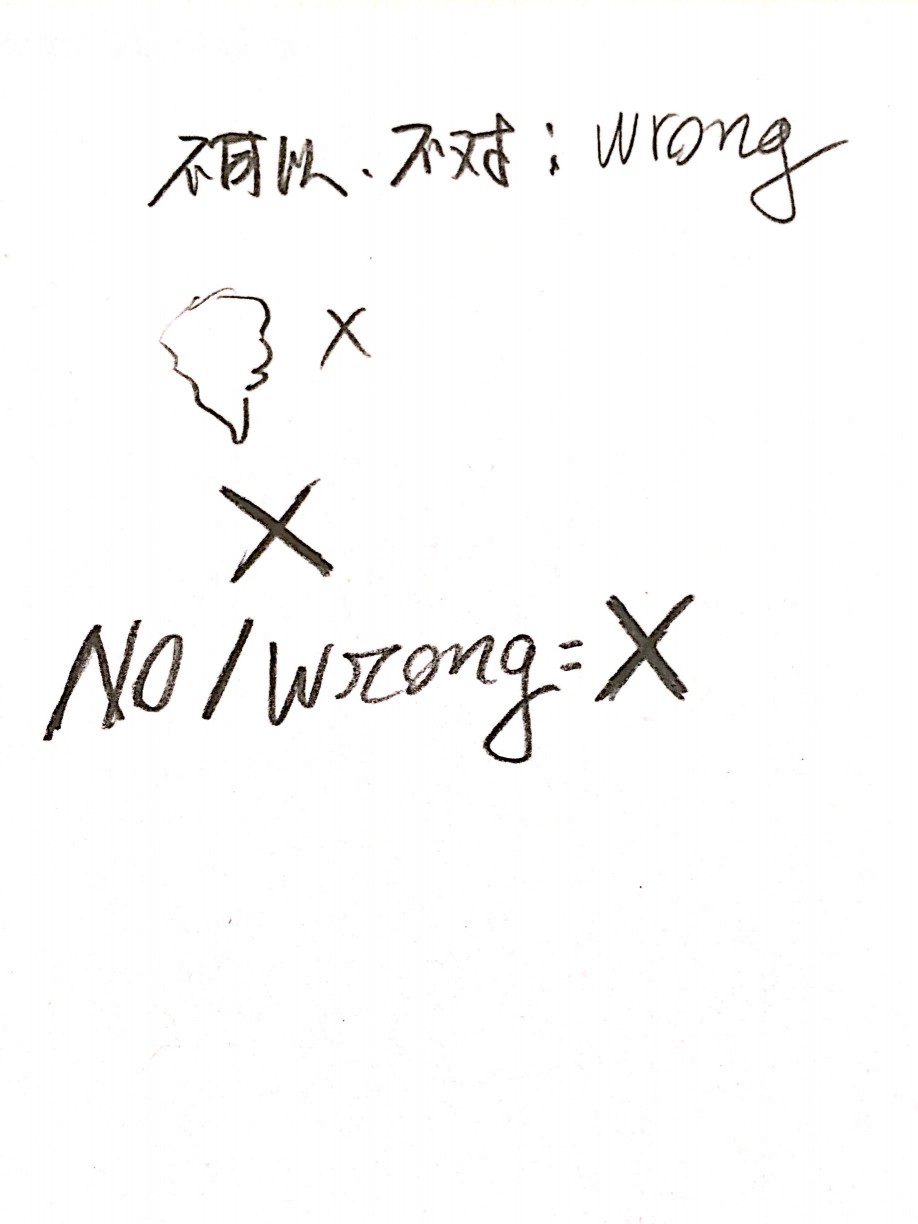 不可以、不对：wrong
X
X
NO/wrong=X